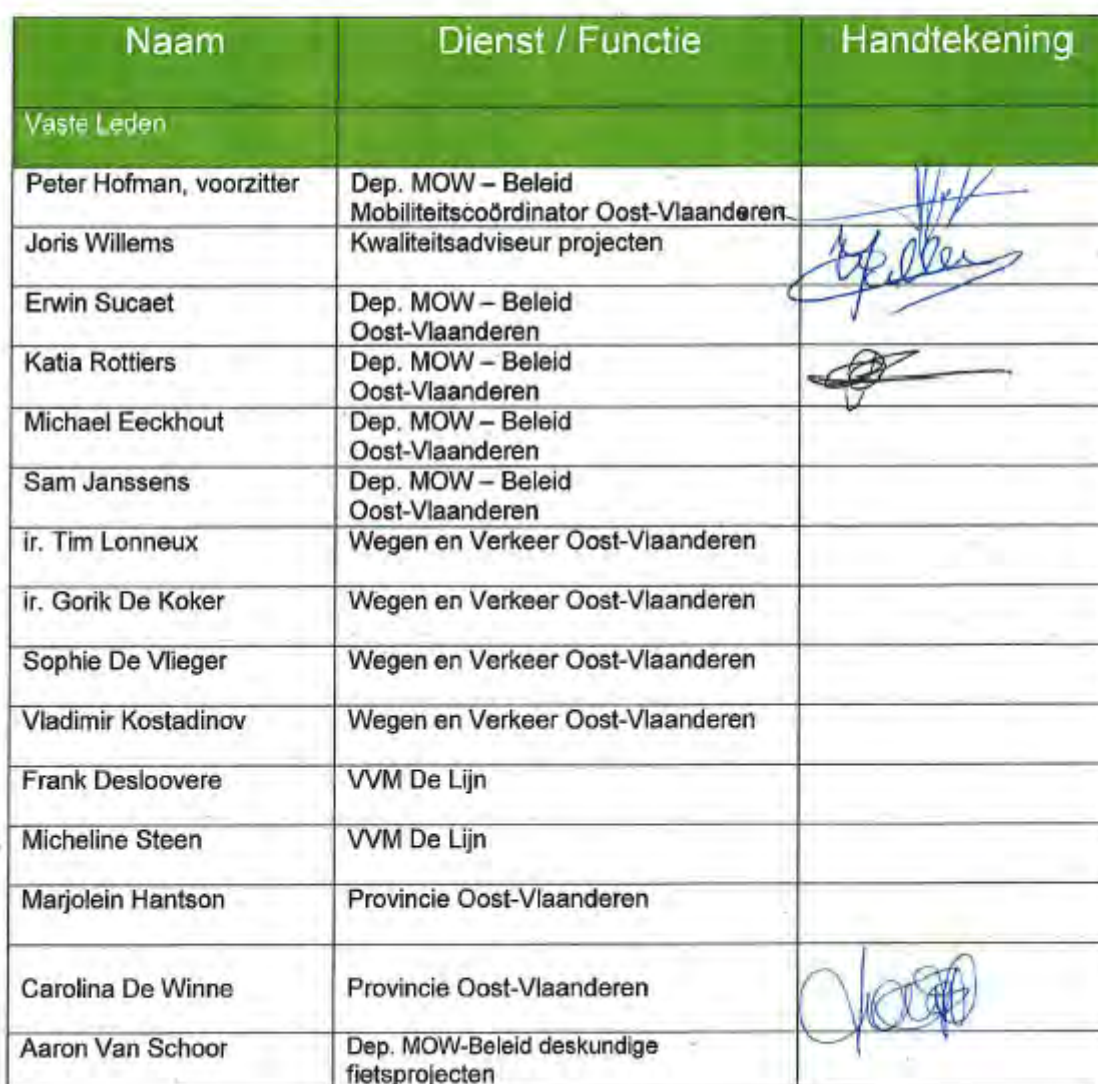 Naam Dienst / Functie Handtekening
Vaste Leden
Peter Hofman, voorzitter Dep. MOW – Beleid
Mobiliteitscoördinator Oost-Vlaanderen
Joris Willems Kwaliteitsadviseur projecten
Erwin Sucaet Dep. MOW – Beleid
Oost-Vlaanderen
Katia Rottiers Dep. MOW – Beleid
Oost-Vlaanderen
Michael Eeckhout Dep. MOW – Beleid
Oost-Vlaanderen
Sam Janssens Dep. MOW – Beleid
Oost-Vlaanderen
ir. Tim Lonneux Wegen en Verkeer Oost-Vlaanderen
ir. Gorik De Koker Wegen en Verkeer Oost-Vlaanderen
Sophie De Vlieger Wegen en Verkeer Oost-Vlaanderen
Vladimir Kostadinov Wegen en Verkeer Oost-Vlaanderen
Frank Desloovere VVM De Lijn
Micheline Steen VVM De Lijn
Marjolein Hantson Provincie Oost-Vlaanderen
Carolina De Winne Provincie Oost-Vlaanderen
Aaron Van Schoor Dep. MOW-Beleid deskundige
fietsprojecten